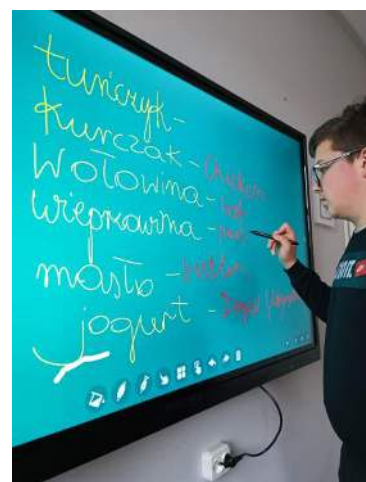 tuńczyk -
Kurczak - Chicken
Wołowina - beef
wieprzowina -
masło - butter
jogurt -